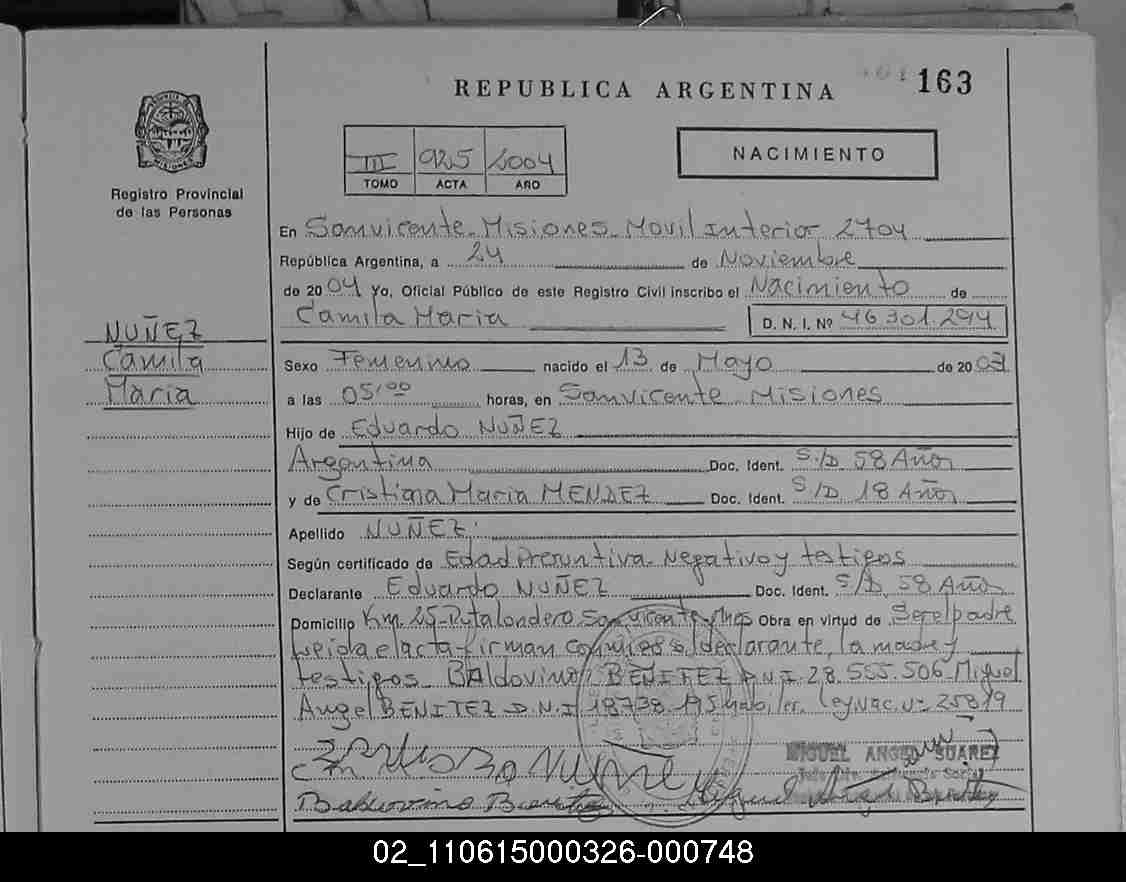 163
REPUBLICA ARGENTINA
III 925 2004
TOMO ACTA AÑO
NACIMIENTO
Registro Provincial
de las Personas
NUÑEZ
Camila
Maria
En Sanvicente - Misiones - Movil Interior 2704
República Argentina, a 24 de Noviembre
de 2004 Yo, Oficial Público de este Registro Civil inscribo el Nacimiento de
Camila Maria D. N. I. Nº 46 301.294
Sexo Femenino nacido el 13 de Mayo de 2003
a las 05,00 horas, en Sanvicente Misiones
Hijo de Eduardo NUÑEZ
Argentina Doc. Ident. S/D 58 Años
y de Cristina Maria MENDEZ Doc. Ident. S/D 18 Años
Apellido NUÑEZ
Según certificado de Edad Presuntiva - Negativo y testigos
Declarante Eduardo NUÑEZ Doc. Ident. S/D 58 Años
Domicilio Km. 25 - Sanvicente Mnes Obra en virtud de Ser el padre
Leida el acta firman conmigo el declarante, la madre y
testigos BAldovino BENITEZ D.N.I. 28.555.506 - Miguel
Angel BENITEZ D.N.I 18738.195 Ley Nac. nº 25819
MIGUEL ANGEL SUAREZ
02_110615000326-000748